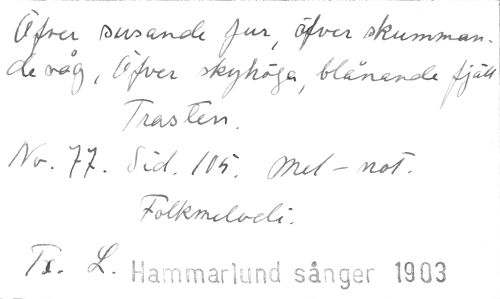 Öfver susande fur, öfver skumman-
de våg, Öfver skyhöga, blånande fjäll
Trasten.
No. 77. Sid. 105. Mel-not.
Folkmelodi.
Tx. L. Hammarlund sånger 1903